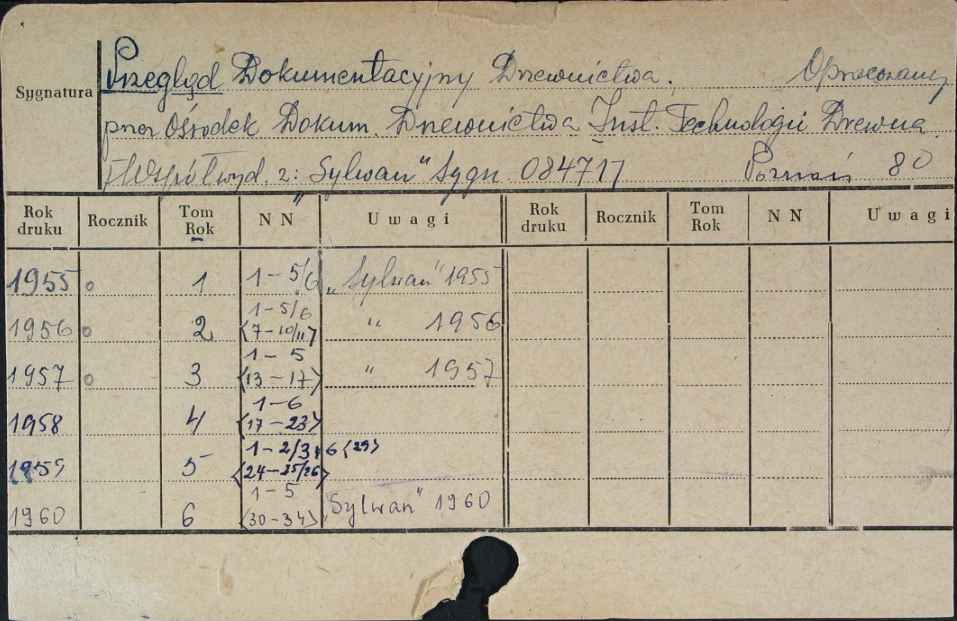 Sygnatura
Przegląd Dokumentacyjny Drzewnictwa. Opracowany
przez Ośrodek Dokum. Drzewnictwa Inst. Technologii Drewna
Współwyd. z: "Sylwan" Sygn. 084717 Poznań 80
Rok druku Rocznik Tom Rok N N Uwagi Rok druku Rocznik Tom Rok N N Uwagi
1955 o 1 1-5/6 „Sylwan" 1955
1956 o 2 1-5/6 <7-10/11> " 1956
1957 o 3 1-5 <13-17> " 1957
1958 4 1-6 <17-23>
1959 5 1-2/3, 6 <29> <24-25/26>
1960 6 1-5 <30-34> "Sylwan" 1960